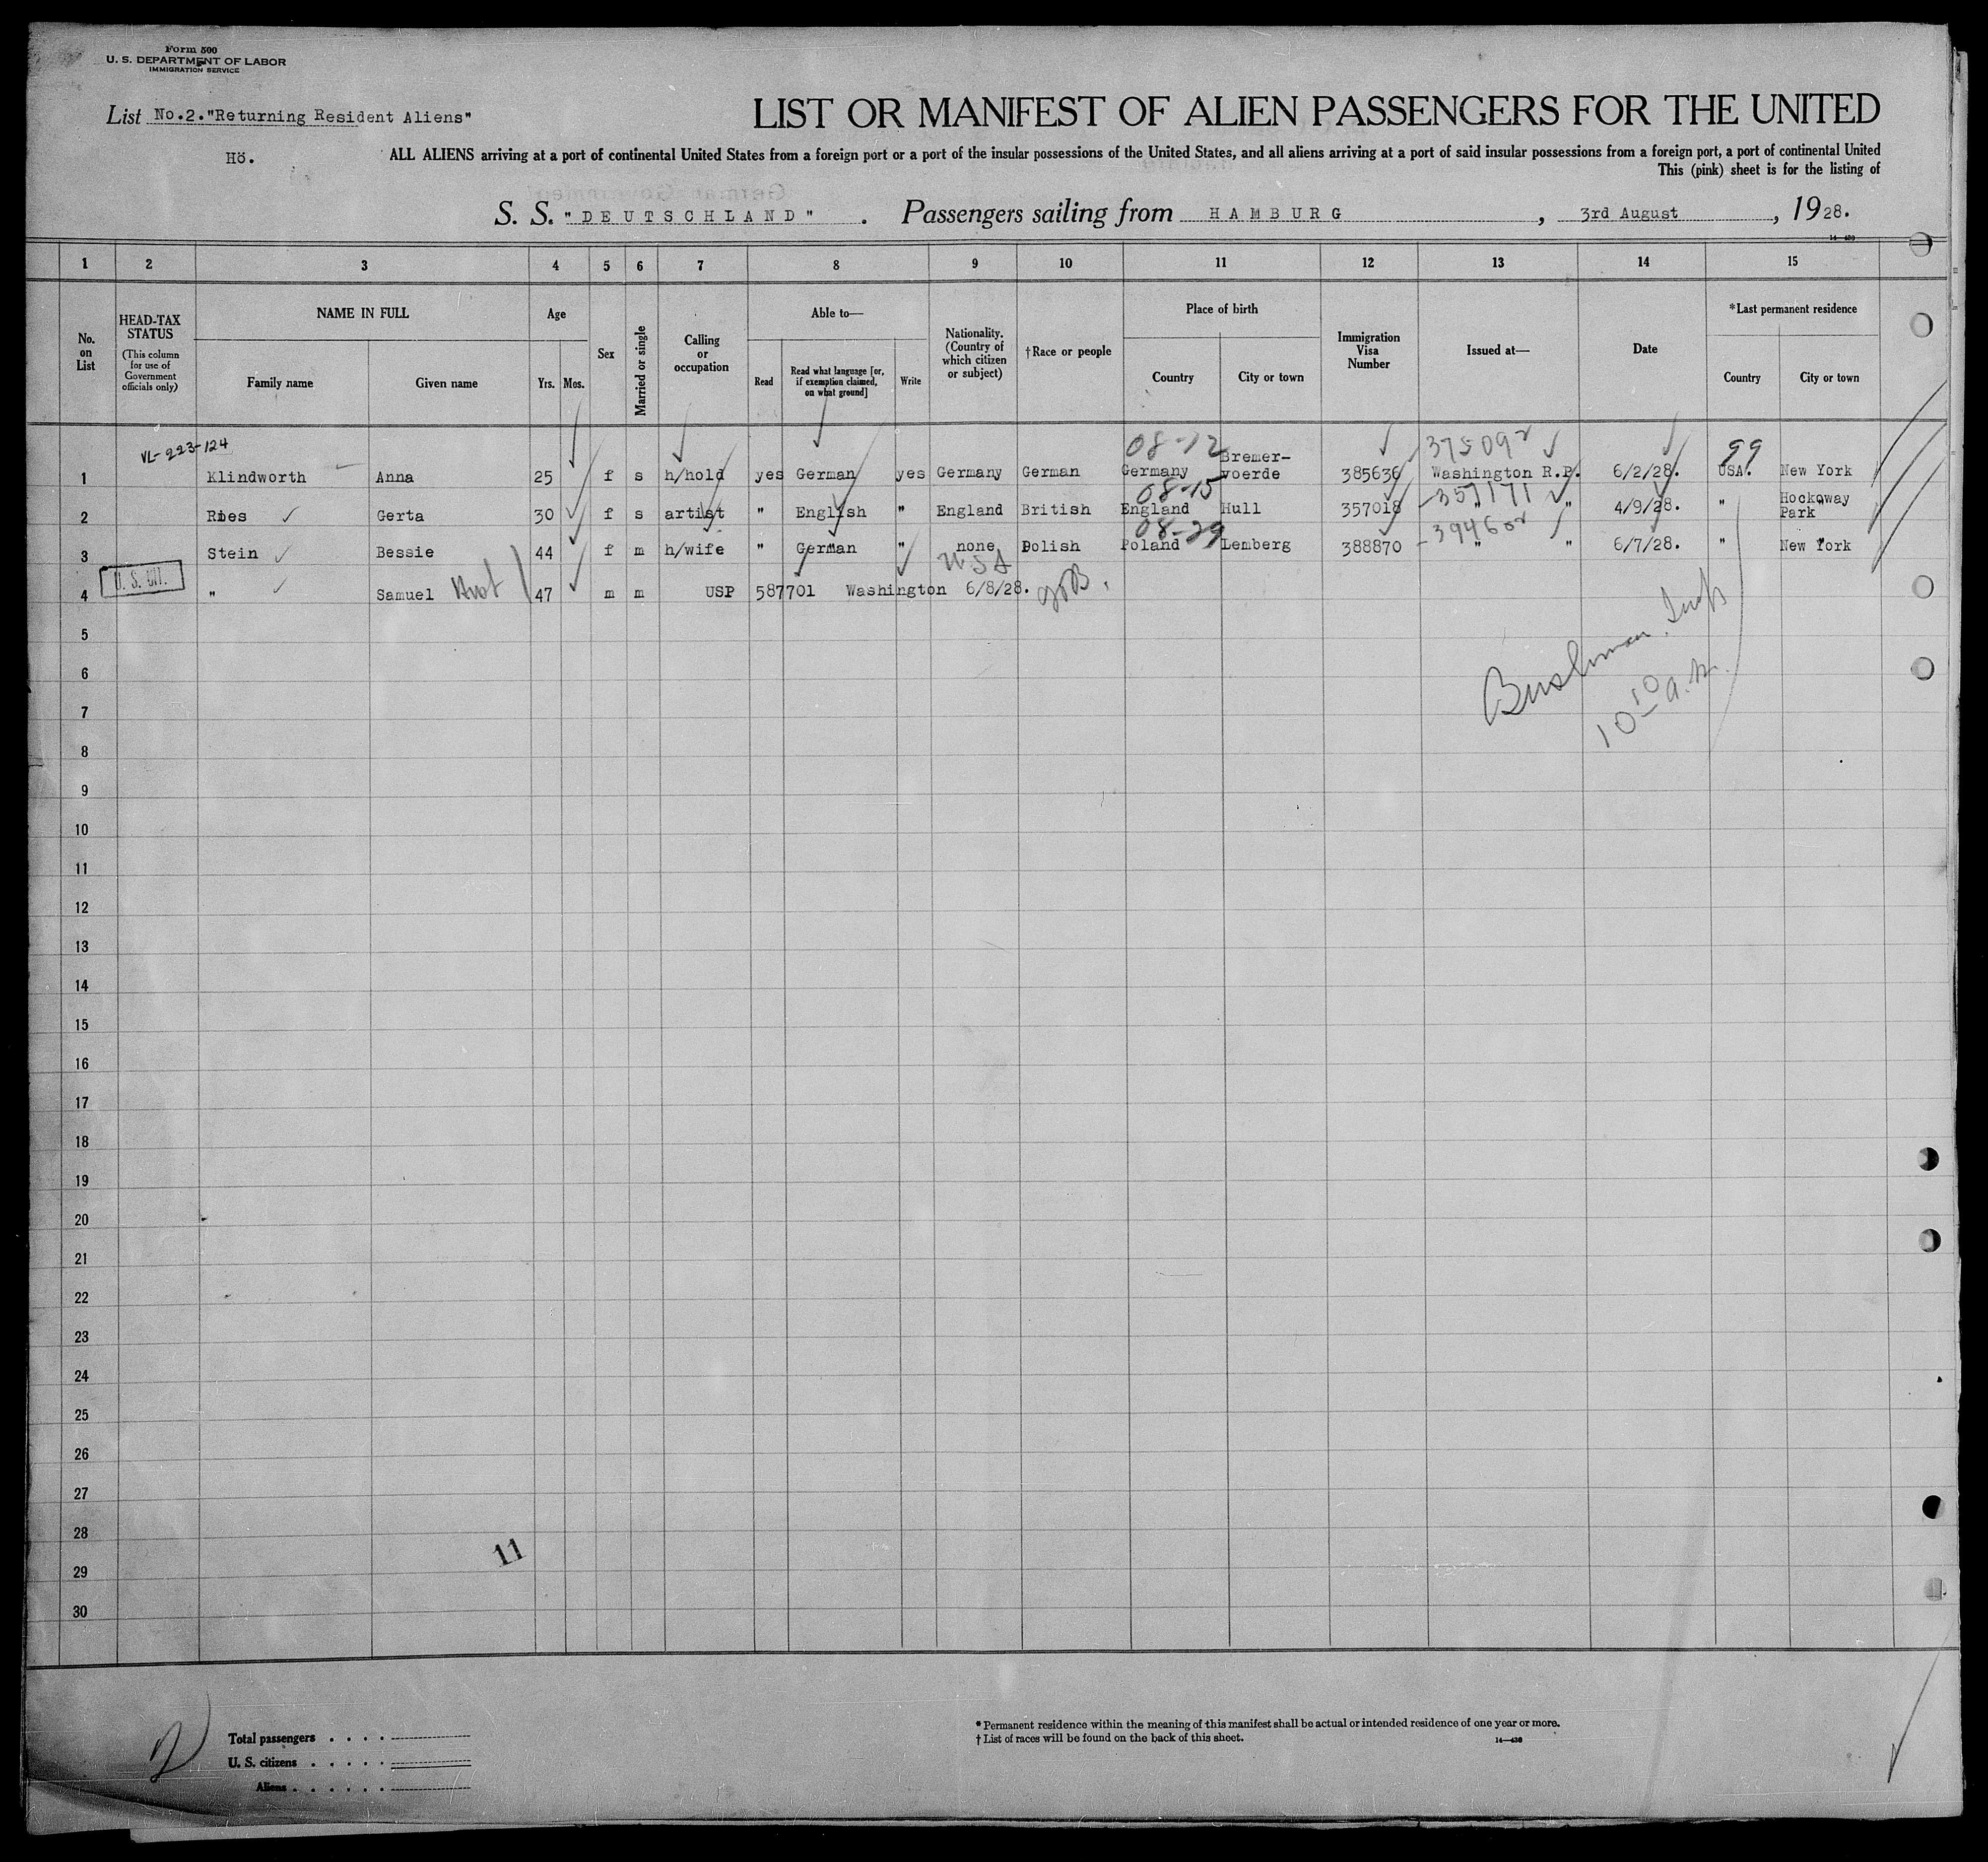 Form 500
U. S. DEPARTMENT OF LABOR
IMMIGRATION SERVICE
List No.2."Returning Resident Aliens"
Hö.
LIST OR MANIFEST OF ALIEN PASSENGERS FOR THE UNITED
ALL ALIENS arriving at a port of continental United States from a foreign port or a port of the insular possessions of the United States, and all aliens arriving at a port of said insular possessions from a foreign port, a port of continental United
This (pink) sheet is for the listing of
S. S. "DEUTSCHLAND". Passengers sailing from HAMBURG, 3rd August, 1928.
14—430
1 2 3 4 5 6 7 8 9 10 11 12 13 14 15
No. on List
HEAD-TAX STATUS
(This column for use of Government officials only)
NAME IN FULL
Family name Given name
Age
Yrs. Mos.
Sex
Married or single
Calling or occupation
Able to—
Read
Read what language [or, if exemption claimed, on what ground]
Write
Nationality. (Country of which citizen or subject)
†Race or people
Place of birth
Country City or town
Immigration Visa Number
Issued at—
Date
*Last permanent residence
Country City or town
VL-223-124 08-12 375092 99
1 Klindworth Anna 25 f s h/hold yes German yes Germany German Germany Bremer-voerde 385636 Washington R.P. 6/2/28. USA. New York
08-15 357171
2 Ries Gerta 30 f s artist " English " England British England Hull 357018 " " 4/9/28. " Hockaway Park"
08-29 394602
3 Stein Bessie 44 f m h/wife " German " none Polish Poland Lemberg 388870 " " 6/7/28. " New York
U. S. CIT. USA
4 " Samuel 47 m m USP 587701 Washington 6/8/28.
5
6
Bushman, Insp
10 10 a.m.
7
8
9
10
11
12
13
14
15
16
17
18
19
20
21
22
23
24
25
26
27
28
11
29
30
Total passengers
U. S. citizens
Aliens
* Permanent residence within the meaning of this manifest shall be actual or intended residence of one year or more.
† List of races will be found on the back of this sheet.
14—430